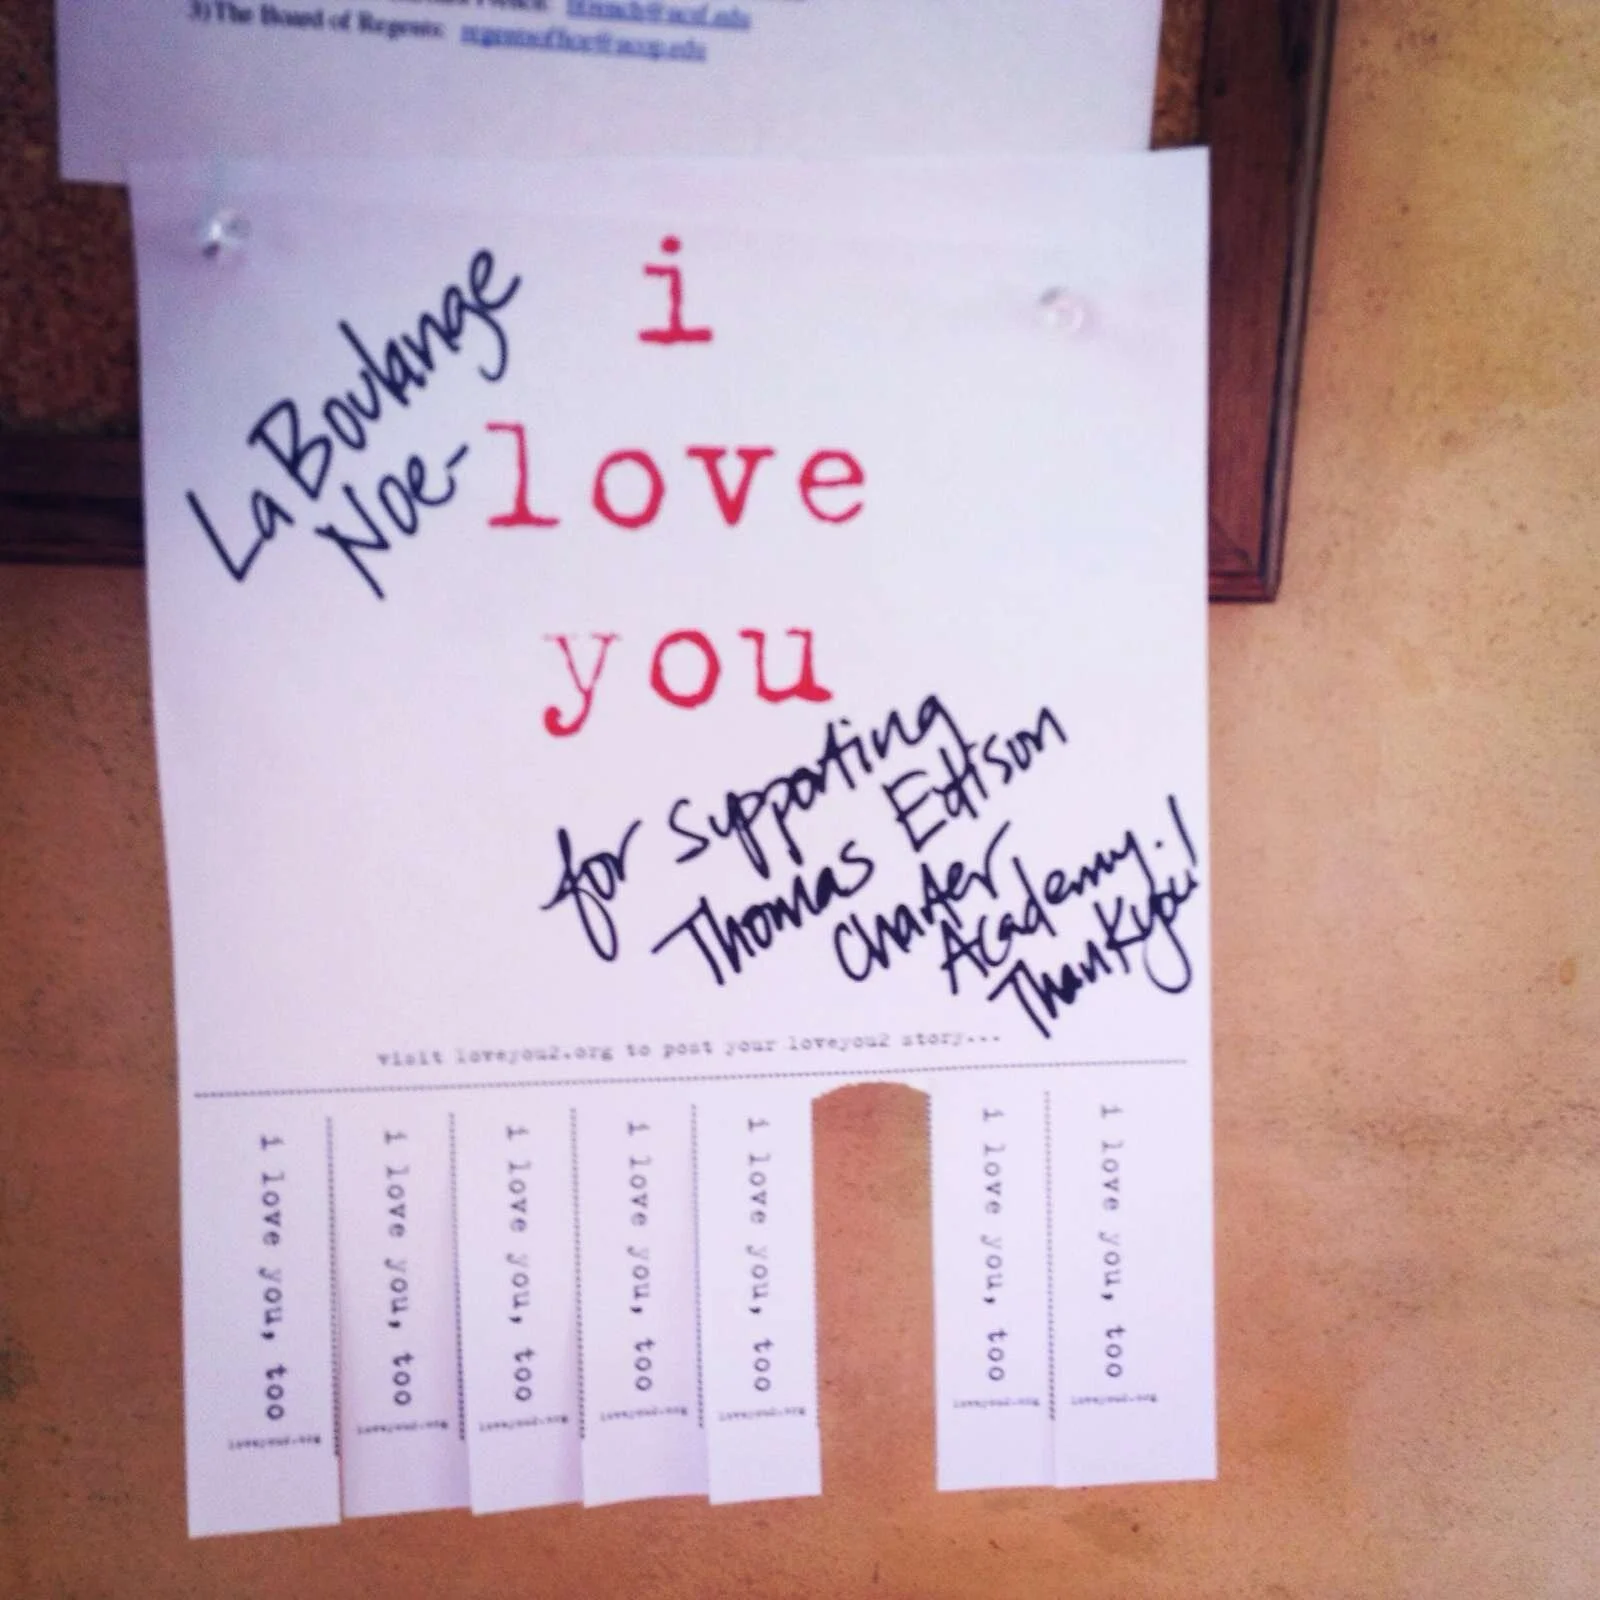 3) The Board of Regents:
LaBoulange
Noe-
i
love
you
for supporting
Thomas Edison
Charter
Academy.
Thank you!
visit loveyou2.org to post your loveyou2 story...
i love you, too
loveyou2.org
i love you, too
loveyou2.org
i love you, too
loveyou2.org
i love you, too
loveyou2.org
i love you, too
loveyou2.org
i love you, too
loveyou2.org
i love you, too
loveyou2.org